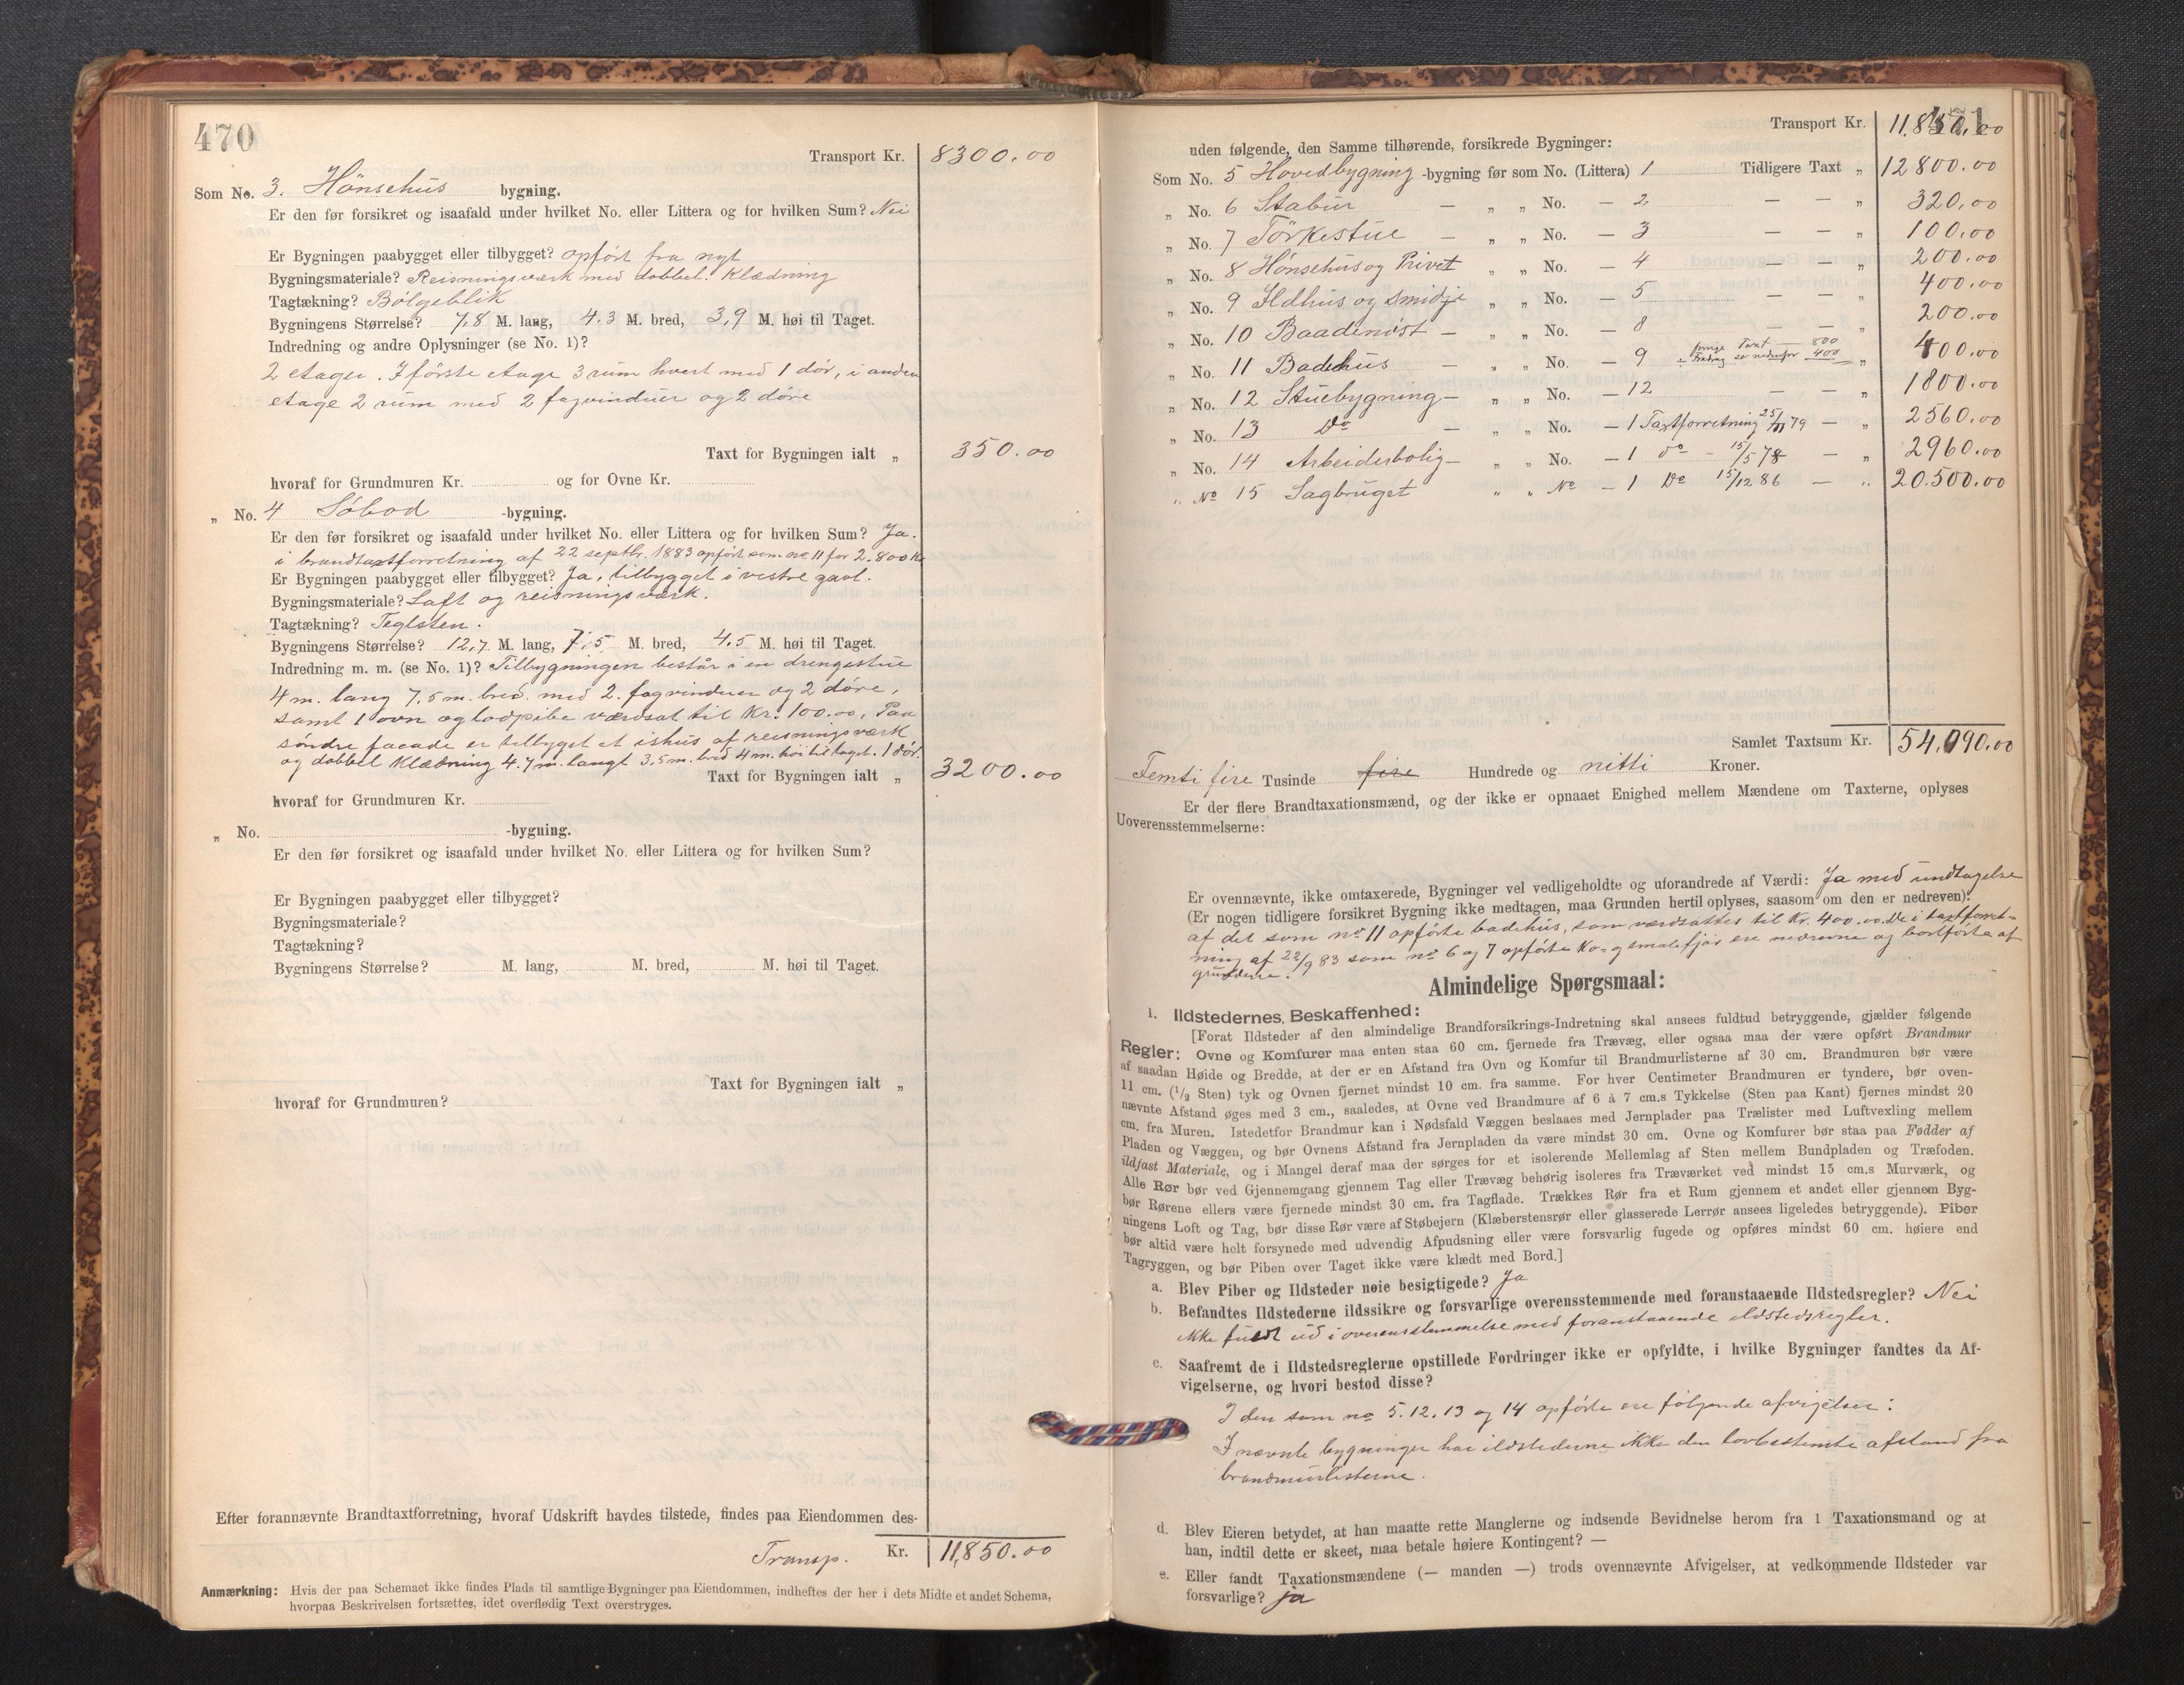 470
Transport Kr. 8300.00
Som No. 3. Hönsehus bygning.
Er den før forsikret og isaafald under hvilket No. eller Littera og for hvilken Sum? Nei
Er Bygningen paabygget eller tilbygget? opfört fra nyt
Bygningsmateriale? Reisningsværk med dobbel. Klædning
Tagtækning? Bölgeblik
Bygningens Størrelse? 7,8 M. lang, 4.3 M. bred, 3,9 M. høi til Taget.
Indredning og andre Oplysninger (se No. 1)?
2 etager. I förste etage 3 rum hvert med 1 dör, i anden
etage 2 rum med 2 fagvinduer og 2 döre
Taxt for Bygningen ialt „ 350.00
hvoraf for Grundmuren Kr. og for Ovne Kr.
„ No. 4 Söbod -bygning.
Er den før forsikret og isaafald under hvilket No. eller Littera og for hvilken Sum? Ja.
i brandtaxtforretning af 22 septbr. 1883 opfört som no 11 for 2.800 Kr
Er Bygningen paabygget eller tilbygget? Ja, tilbygget i vestre gavl.
Bygningsmateriale? Laft og reisningsværk.
Tagtækning? Teglsten.
Bygningens Størrelse? 12,7 M. lang, 7,5 M. bred, 4.5 M. høi til Taget.
Indredning m. m. (se No. 1)? Tilbygningen består i en drengestue
4 m. lang 7,5 m. bred. med 2. fagvinduer og 2 döre,
samt 1 ovn og lodpibe værdsat til Kr. 100.00. Paa
söndre facade er tilbygget et ishus af reisningsværk
og dobbel Klædning 4.7 m. langt 3,5 m. bred 4 m. höi til taget. 1 dör.
Taxt for Bygningen ialt „ 3200.00
hvoraf for Grundmuren Kr.
„ No. -bygning.
Er den før forsikret og isaafald under hvilket No. eller Littera og for hvilken Sum?
Er Bygningen paabygget eller tilbygget?
Bygningsmateriale?
Tagtækning?
Bygningens Størrelse? M. lang, M. bred, M. høi til Taget.
Taxt for Bygningen ialt „
hvoraf for Grundmuren?
Efter forannævnte Brandtaxtforretning, hvoraf Udskrift havdes tilstede, findes paa Eiendommen des-
Transp. Kr. 11,850.00
Anmærkning: Hvis der paa Schemaet ikke findes Plads til samtlige Bygninger paa Eiendommen, indheftes der her i dets Midte et andet Schema,
hvorpaa Beskrivelsen fortsættes, idet overflødig Text overstryges.
471
Transport Kr. 11.850.00
uden følgende, den Samme tilhørende, forsikrede Bygninger:
Som No. 5 Hovedbygning -bygning før som No. (Littera) 1 Tidligere Taxt „ 12800.00
„ No. 6 Stabur — „ „ No. — 2, — — „ 320,00
„ No. 7 Törkestue — „ „ No. — 3 — — „ 100.00
„ No. 8 Hönsehus og Privet „ „ No. — 4 — — „ 200.00
„ No. 9 Ildhus og smidje „ „ No. — 5 — — „ 400.00
„ No. 10 Baadenöst — „ „ No. — 8 — — „ 200.00
„ No. 11 Badehus — „ „ No. — 9 forrige Taxt — 800
÷ Fradrag se nedenfor 400 „ 400.00
„ No. 12 Stuebygning — „ „ No. — 12 — — „ 1800.00
„ No. 13 Do — „ „ No. — 1 Taxtforretning 25/11 79 — „ 2560.00
„ No. 14 Arbeiderbolig — „ „ No. — 1 do - 15/5 78 — „ 2960.00
„ No 15 Sagbruget „ „ No — 1 Do 15/12 86 — „ 20.500.00
Samlet Taxtsum Kr. 54,090.00
Femti fire Tusinde fire Hundrede og nitti Kroner.
Er der flere Brandtaxationsmænd, og der ikke er opnaaet Enighed mellem Mændene om Taxterne, oplyses
Uoverensstemmelserne:
Er ovennævnte, ikke omtaxerede, Bygninger vel vedligeholdte og uforandrede af Værdi: Ja med undtagelse
(Er nogen tidligere forsikret Bygning ikke medtagen, maa Grunden hertil oplyses, saasom om den er nedreven)?
af det som no 11 opförte badehus, som værdsattes til Kr. 400.00. De i taxtforret-
ning af 22/9 83 som no 6 og 7 opförte Ko- og smalefjös ere nedrevne og bortförte af
grundene.
Almindelige Spørgsmaal:
1. Ildstedernes Beskaffenhed:
[Forat Ildsteder af den almindelige Brandforsikrings-Indretning skal ansees fuldtud betryggende, gjælder følgende
Regler: Ovne og Komfurer maa enten staa 60 cm. fjernede fra Trævæg, eller ogsaa maa der være opført Brandmur
af saadan Høide og Bredde, at der er en Afstand fra Ovn og Komfur til Brandmurlisterne af 30 cm. Brandmuren bør være
11 cm. (1/2 Sten) tyk og Ovnen fjernet mindst 10 cm. fra samme. For hver Centimeter Brandmuren er tyndere, bør oven-
nævnte Afstand øges med 3 cm., saaledes, at Ovne ved Brandmure af 6 à 7 cm.s Tykkelse (Sten paa Kant) fjernes mindst 20
cm. fra Muren. Istedetfor Brandmur kan i Nødsfald Væggen beslaaes med Jernplader paa Trælister med Luftvexling mellem
Pladen og Væggen, og bør Ovnens Afstand fra Jernpladen da være mindst 30 cm. Ovne og Komfurer bør staa paa Fødder af
ildfast Materiale, og i Mangel deraf maa der sørges for et isolerende Mellemlag af Sten mellem Bundpladen og Træfoden.
Alle Rør bør ved Gjennemgang gjennem Tag eller Trævæg behørig isoleres fra Træværket ved mindst 15 cm.s Murværk, og
bør Rørene ellers være fjernede mindst 30 cm. fra Tagflade. Trækkes Rør fra et Rum gjennem et andet eller gjennem Byg-
ningens Loft og Tag, bør disse Rør være af Støbejern (Klæberstensrør eller glasserede Lerrør ansees ligeledes betryggende). Piber
bør altid være helt forsynede med udvendig Afpudsning eller være forsvarlig fugede og opføres mindst 60 cm. høiere end
Tagryggen, og bør Piben over Taget ikke være klædt med Bord.]
a. Blev Piber og Ildsteder nøie besigtigede? Ja
b. Befandtes Ildstederne ildssikre og forsvarlige overensstemmende med foranstaaende Ildstedsregler? Nei
ikke fuldt ud i overensstemmelse med foranstaaende ildstedsregler.
c. Saafremt de i Ildstedsreglerne opstillede Fordringer ikke er opfyldte, i hvilke Bygninger fandtes da Af-
vigelserne, og hvori bestod disse?
I den som no 5. 12. 13 og 14 opförte ere fölgende afvigelser:
I nævnte bygninger har ildstederne ikke den lovbestemte afstand fra
brandmurlisterne.
d. Blev Eieren betydet, at han maatte rette Manglerne og indsende Bevidnelse herom fra 1 Taxationsmand og at
han, indtil dette er skeet, maa betale høiere Kontingent? —
e. Eller fandt Taxationsmændene (— manden —) trods ovennævnte Afvigelser, at vedkommende Ildsteder var
forsvarlige? ja